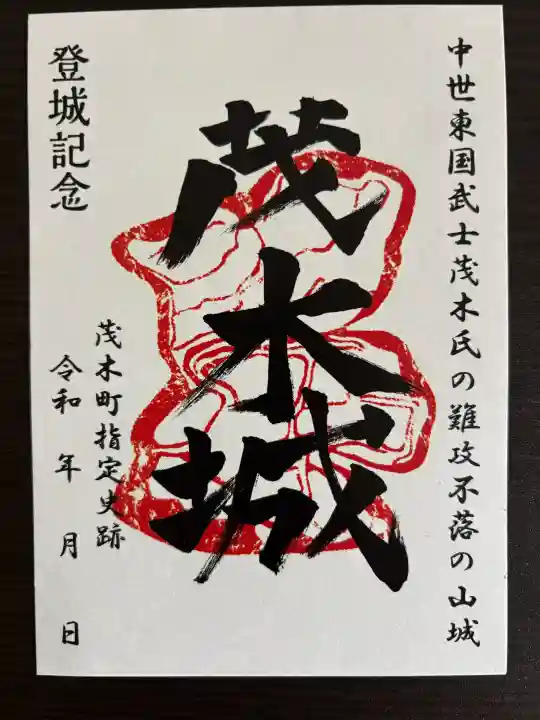 中世東国武士茂木氏の難攻不落の山城
茂木城
茂木町指定史跡
登城記念
令和 年 月 日